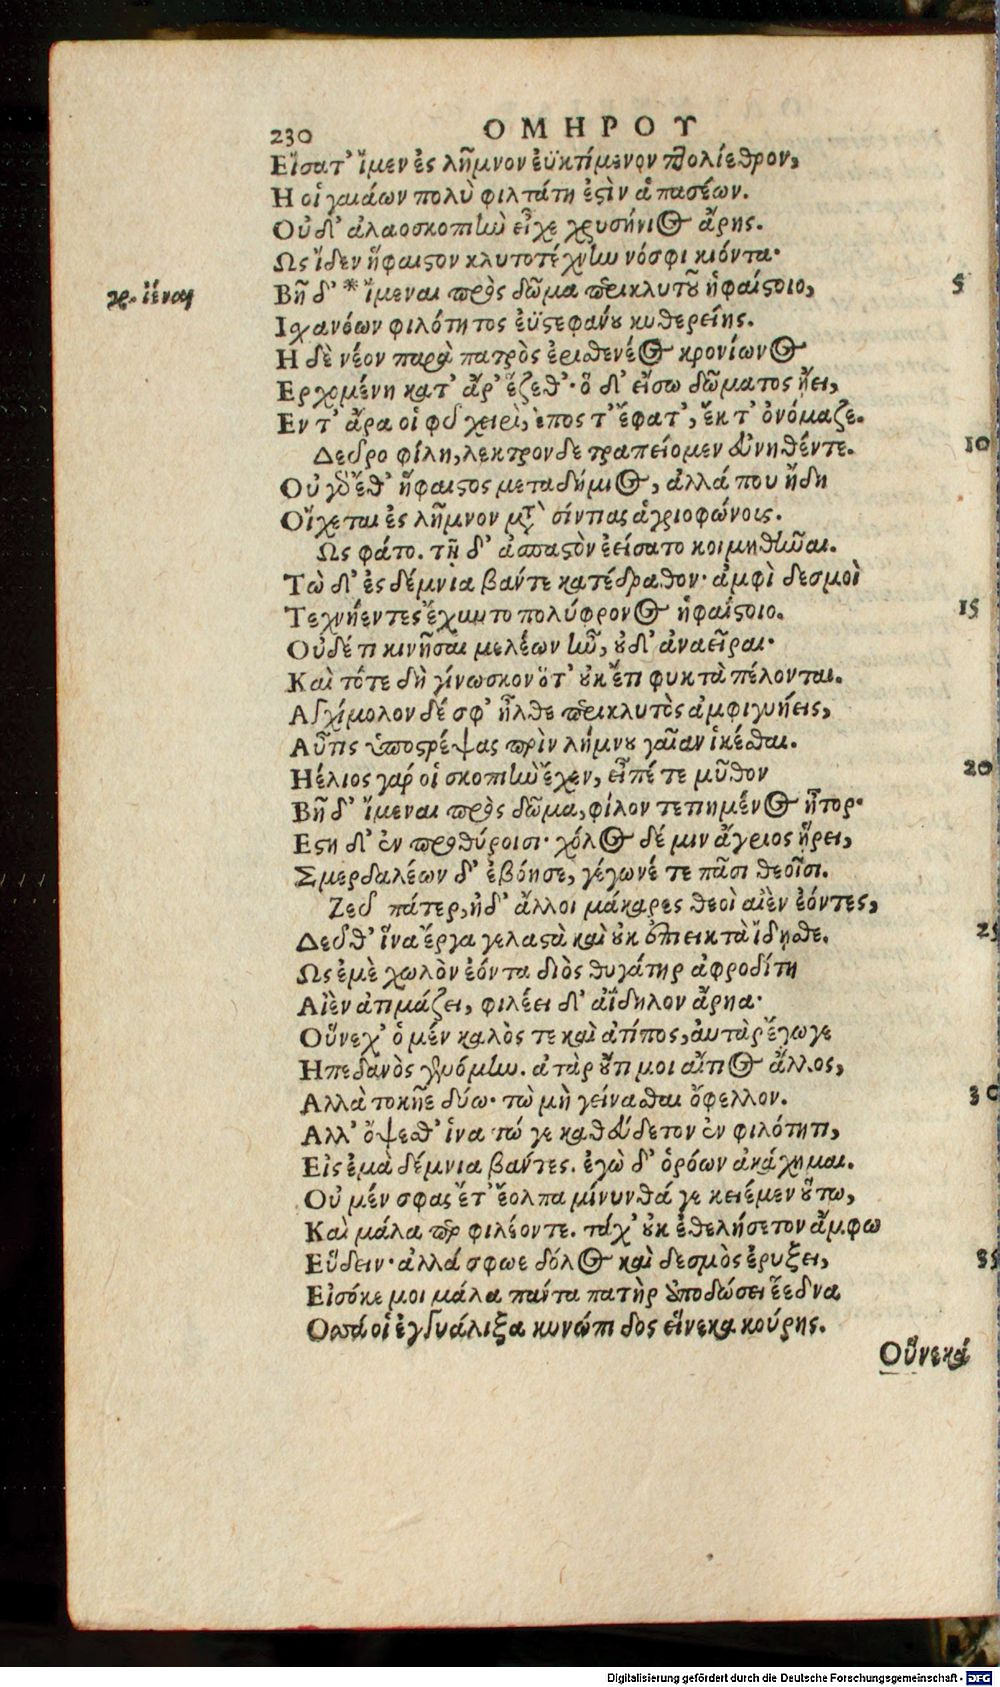 230 ΟΜΗΡΟΥ
Εἴσατ' ἴμεν ἐς λῆμνον ἐϋκτίμενον πτολίεθρον,
Η οἱ γαιάων πολὺ φιλτάτη ἐστὶν ἁπασέων.
Οὐδ' ἀλαοσκοπιὼ εἶχε χρυσήνιος ἄρης.
Ως ἴδεν ἥφαιστον κλυτοτέχνην νόσφι κιόντα·
Βῆ δ' * ἴμεναι πρὸς δῶμα περικλυτοῦ ἡφαίστοιο, 5
γρ. ἰέναι
Ιχανόων φιλότητος ἐϋστεφάνου κυθερείης.
Η δὲ νέον παρὰ πατρὸς ἐρισθενέος κρονίωνος
Ερχομένη κατ' ἄρ' ἕζεθ'· ὅ δ' εἴσω δώματος ᾔει,
Εν τ' ἄρα οἱ φῦ χειρὶ, ἔπος τ' ἔφατ', ἔκ τ' ὀνόμαζε.
Δεῦρο φίλη, λεκτρονδε τραπείομεν εὐνηθέντε. 10
Οὐ γὰρ ἔθ' ἥφαιστος μεταδήμιος, ἀλλά που ἤδη
Οἴχεται ἐς λῆμνον μετὰ σίντιας ἀγριοφώνοις.
Ως φάτο. τῇ δ' ἀσπαστὸν ἐείσατο κοιμηθῆναι.
Τὼ δ' ἐς δέμνια βάντε κατέδραθον· ἀμφὶ δεσμοὶ
Τεχνήεντες ἔχυντο πολύφρονος ἡφαίστοιο. 15
Οὐδέ τι κινῆσαι μελέων ἦν, οὐδ' ἀναεῖραι·
Καὶ τότε δὴ γίνωσκον ὅτ' οὐκ ἔτι φυκτὰ πέλονται.
Αγχίμολον δέ σφ' ἦλθε περικλυτὸς ἀμφιγυήεις,
Αὖτις ὑποστρέψας πρὶν λήμνου γαῖαν ἱκέσθαι.
Ηέλιος γάρ οἱ σκοπιὴν ἔχεν, εἶπέ τε μῦθον 20
Βῆ δ' ἴμεναι πρὸς δῶμα, φίλον τετιημένος ἦτορ·
Εστη δ' ἐν προθύροισι· χόλος δέ μιν ἄγριος ᾕρει,
Σμερδαλέων δ' ἐβόησε, γέγωνέ τε πᾶσι θεοῖσι.
Ζεῦ πάτερ, ἠδ' ἄλλοι μάκαρες θεοὶ αἰὲν ἐόντες,
Δεῦθ' ἵνα ἔργα γελαστὰ καὶ οὐκ ἐπιεικτὰ ἴδησθε. 25
Ως ἐμὲ χωλὸν ἐόντα διὸς θυγάτηρ ἀφροδίτη
Αἰὲν ἀτιμάζει, φιλέει δ' ἀΐδηλον ἄρηα·
Οὕνεχ' ὁ μέν καλὸς τε καὶ ἀτίπος, αὐτὰρ ἔγωγε
Ηπεδανὸς γενόμην. ἀτὰρ οὔτι μοι αἴτιος ἄλλος,
Αλλὰ τοκῆε δύω· τὼ μὴ γείνασθαι ὄφελλον. 30
Αλλ' ὄψεσθ' ἵνα τώ γε καθεύδετον ἐν φιλότητι,
Εἰς ἐμὰ δέμνια βάντες. ἐγὼ δ' ὁρόων ἀκάχημαι.
Οὐ μέν σφας ἔτ' ἔολπα μίνυνθά γε κειέμεν οὕτω,
Καὶ μάλα περ φιλέοντε. τάχ' οὐκ ἐθελήσετον ἄμφω
Εὕδειν· ἀλλά σφωε δόλος καὶ δεσμὸς ἐρύξει, 35
Εἰσόκε μοι μάλα πάντα πατὴρ ἀποδώσει ἕεδνα
Οσσά οἱ ἐγγυάλιξα κυνώπιδος εἵνεκα κούρης.
Οὕνεκά
Digitalisierung gefördert durch die Deutsche Forschungsgemeinschaft - DFG